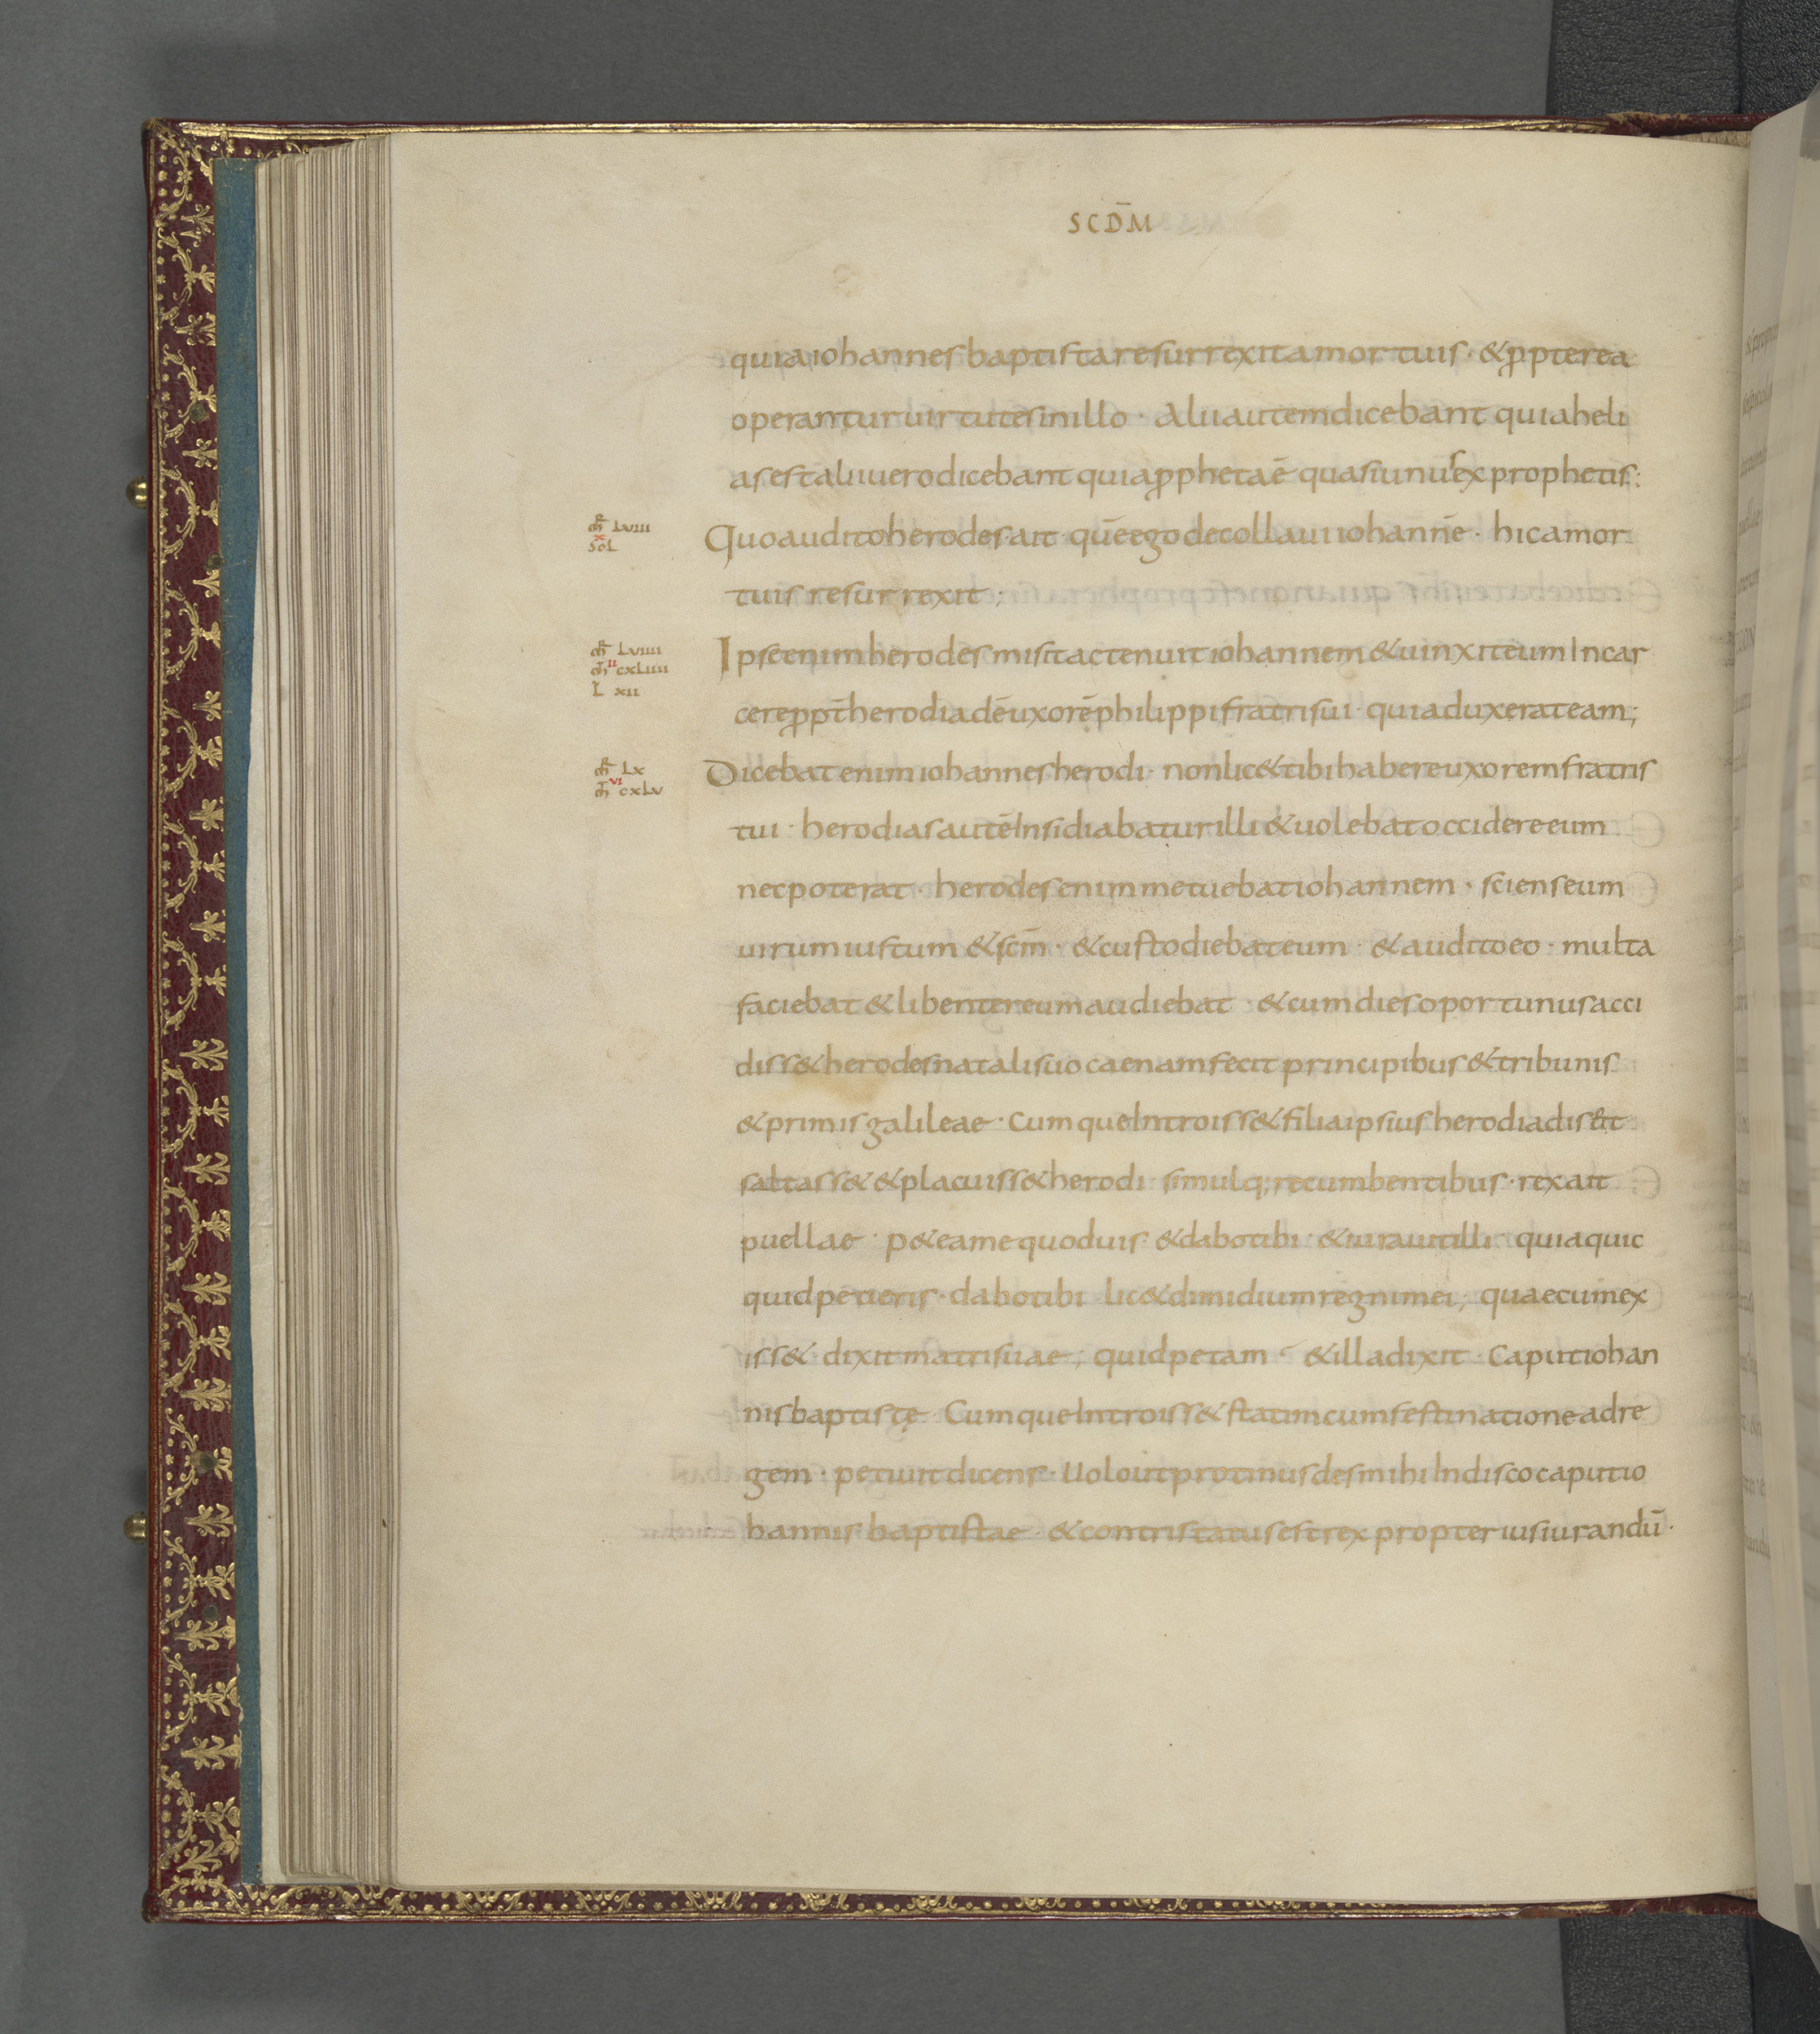 SCD̄M
quia iohannes baptista resurrexit amortuis · & ꝓpterea
operantur uirtutes inillo · Alii autem dicebant quia heli
as est alii uero dicebant quia ꝓpheta ē quasi unus ex prophetis :
mr̄ LVIII
x
SOL
Quo audito herodes · ait · quē ego decollaui iohannē · hic amor
tuis resurrexit ;
mr̄ LVIIII
mt̄ II CXLIIII
L XII
Ipse enim herodes misit ac tenuit iohannem & uinxit eum In car
cere ꝓpt̄ herodiadē uxorē philippi fratri sui · quia duxerat eam ;
mr̄ LX
VI
mt̄ CXLV
Dicebat enim iohannes herodi · non lic& tibi habere uxorem fratris
tui · herodias autē Insidiabatur illi & uolebat occidere eum
nec poterat · herodes enim metuebat iohannem · sciens eum
uirum iustum & scm̄ · & custodiebat eum · & audito eo · multa
faciebat & libenter eum audiebat · & cum dies oportunus acci
diss& herodes natali suo caenam fecit principibus & tribunis
& primis galileae · Cumque Introiss& filia ipsius herodiadis &
saltass& & placuiss& herodi simulq; recumbentibus · rex ait
puellae · p&e a me quod uis & dabo tibi · & iurauit illi · quia quic
quid petieris · dabo tibi lic& dimidium regni mei ; quae cum ex
iss& dixit matri suae ; quid petam & illa dixit · Caput iohan
nis baptistę Cumque Introiss& statim cum festinatione ad re
gem · petiuit dicens · Uolo ut protinus des mihi In disco caput io
hannis baptistae · & contristatus est rex propter iusiurandū ·